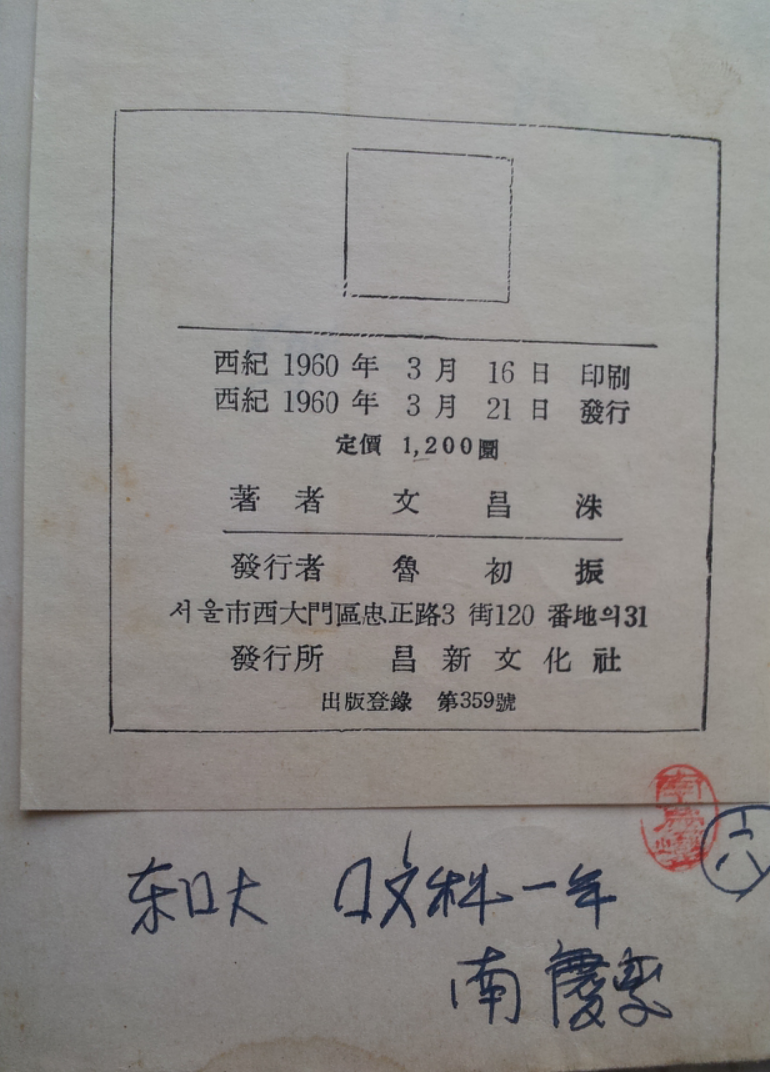 西紀 1960 年 3 月 16 日 印刷
西紀 1960 年 3 月 21 日 發行
定價 1,200圜
著者 文昌洙
發行者 魯初振
서울市西大門區忠正路3 街120 番地의31
發行所 昌新文化社
出版登錄 第359號
一年
南慶